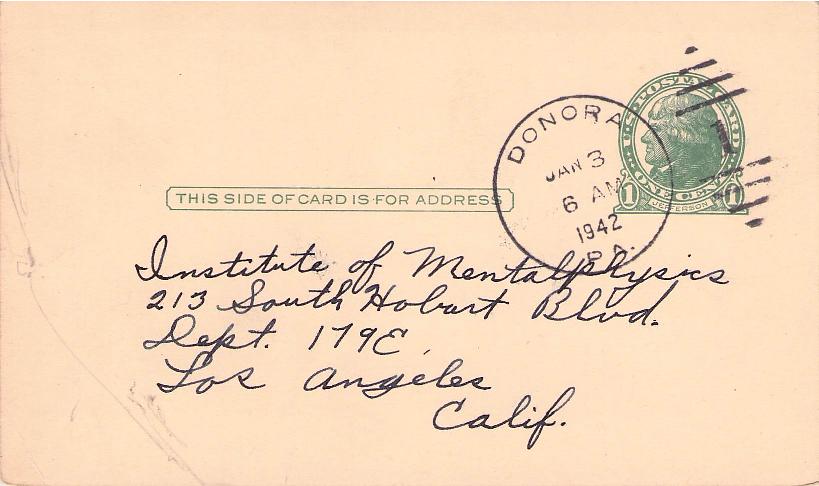 U.S. POSTAL CARD
ONE CENT
1 JEFFERSON 1
DONORA
JAN 3
6 AM
1942
PA.
1
THIS SIDE OF CARD IS FOR ADDRESS
Institute of Mentalphysics
213 South Hobart Blvd.
Dept. 179E
Los Angeles
Calif.